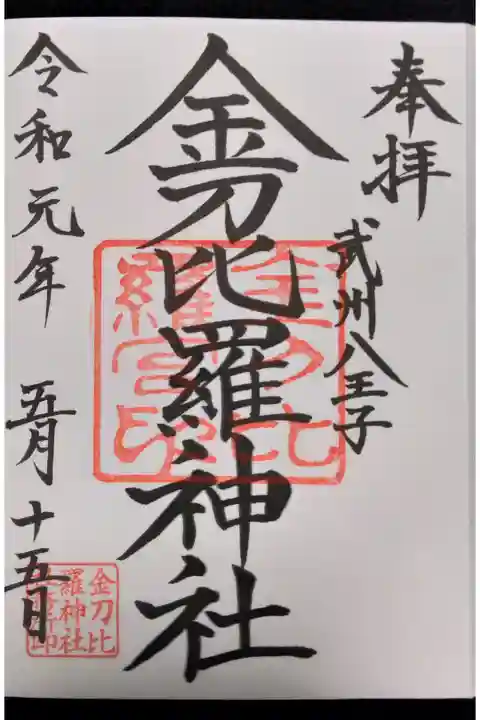 奉拝
武州八王子
金刀比羅神社
令和元年 五月十五日
金刀比羅宮印
金刀比
羅神社